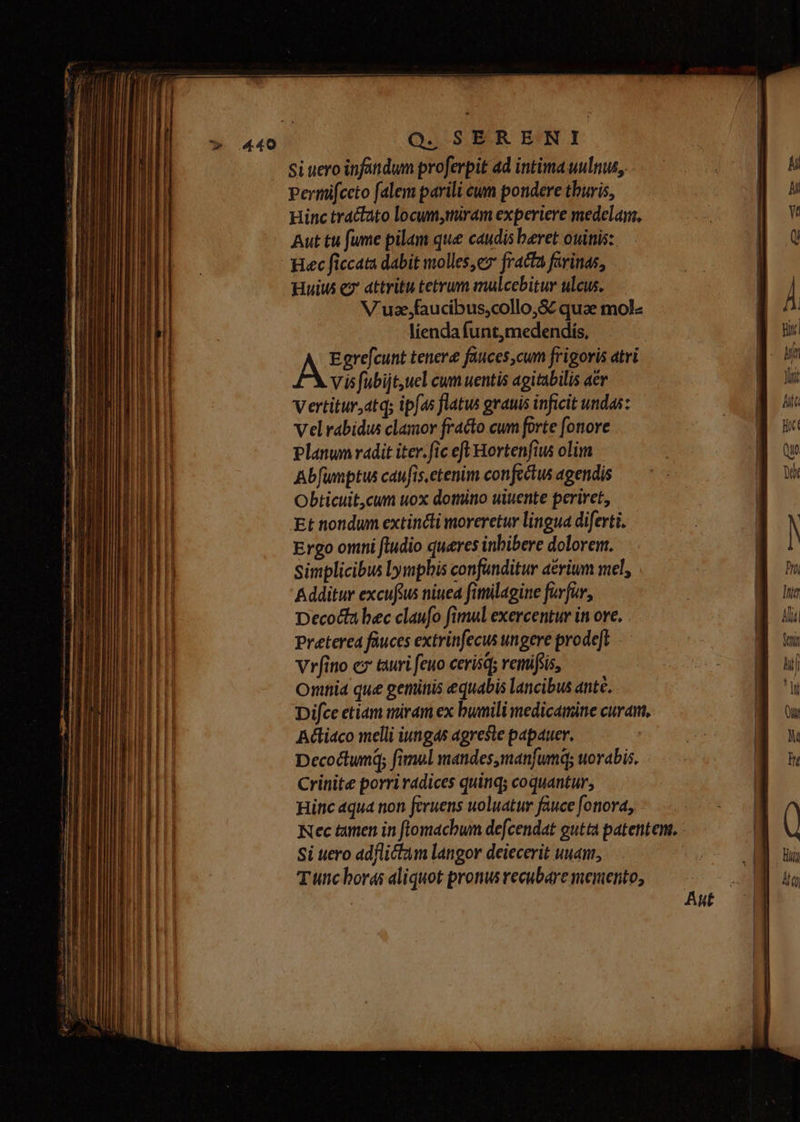 440 Q. SERENI
Si uero infandum proſerpit ad intima uulnus,
Permiſceto ſalem parili cum pondere thuris,
Hinc tractato locum, miram experiere medelam.
Aut tu ſume pilam quæ caudis hæret ouinis:
Hæc ſiccata dabit molles, & fracta farinas,
Huius & attritu tetrum mulcebitur ulcus.
Vuæ, faucibus, collo, & quæ mol-
lienda ſunt, medendis.
Aegreſcunt teneræ fauces, cum frigoris atri
Vis ſubijt, uel cum uentis agitabilis aër
Vertitur, atq; ipſas flatus grauis inficit undas:
Vel rabidus clamor fracto cum forte ſonore
Planum radit iter. ſic eſt Hortenſius olim
Abſumptus cauſis. etenim confectus agendis
Obticuit, cum uox domino uiuente periret,
Et nondum extincti moreretur lingua diſerti.
Ergo omni ſtudio quæres inhibere dolorem.
Simplicibus lymphis confunditur aërium mel,
Additur excuſſus niuea ſimilagine furfur,
Decocta hæc clauſo ſimul exercentur in ore.
Præterea fauces extrinſecus ungere prodeſt
Vrſino & tauri ſeuo cerisq; remiſsis,
Omnia quæ geminis æquabis lancibus antè.
Diſce etiam miram ex humili medicamine curam.
Actiaco melli iungas agreſte papauer.
Decoctumq́; ſimul mandes, manſumq́; uorabis.
Crinitæ porri radices quinq; coquantur,
Hinc aqua non feruens uoluatur fauce ſonora,
Nec tamen in ſtomachum deſcendat gutta patentem.
Si uero adflictam langor deiecerit uuam,
Tunc horas aliquot pronus recubare memento,
Aut